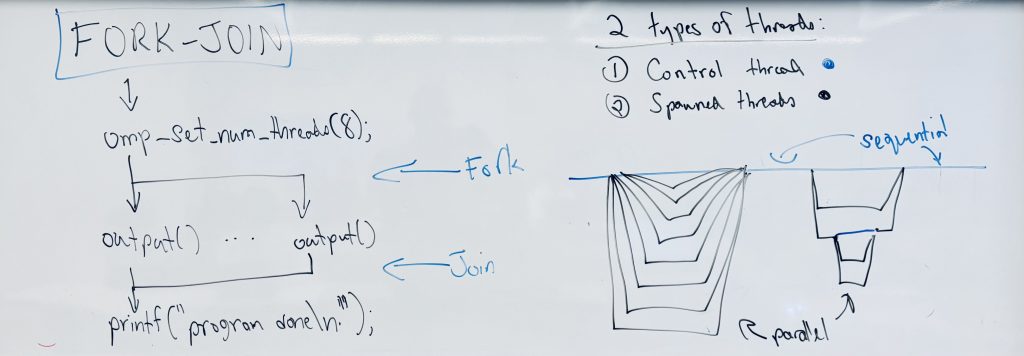 FORK-JOIN
omp_set_num_threads(8);
Fork
output() ... output()
Join
printf("program done\n.");
2 types of threads:
① Control thread
② Spawned threads
sequential
parallel